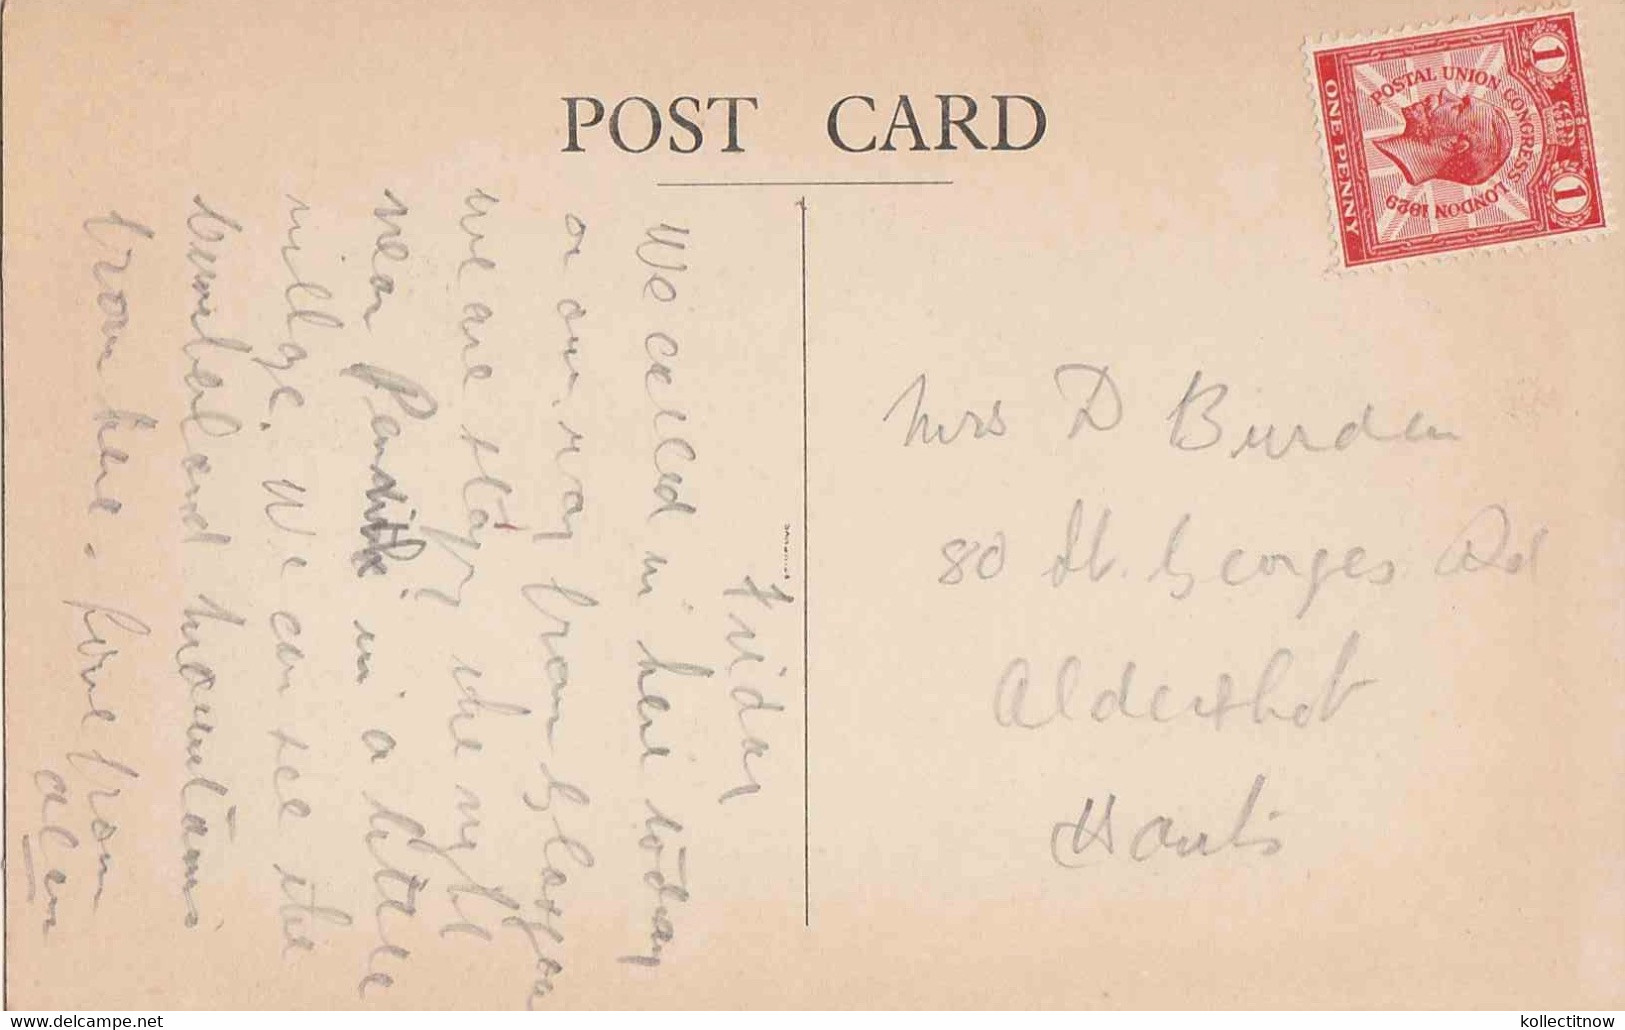 POST CARD
POSTAL UNION CONGRESS LONDON 1929
1 1
ONE PENNY
Friday
We called in here today
on our way from Glasgow
We are staying the night
near Penrith in a little
village. We can see the
Cumberland mountains
from here. Love from
Alan
Mrs D Burden
80 St. Georges Rd
Aldershot
Hants
kollectitnow